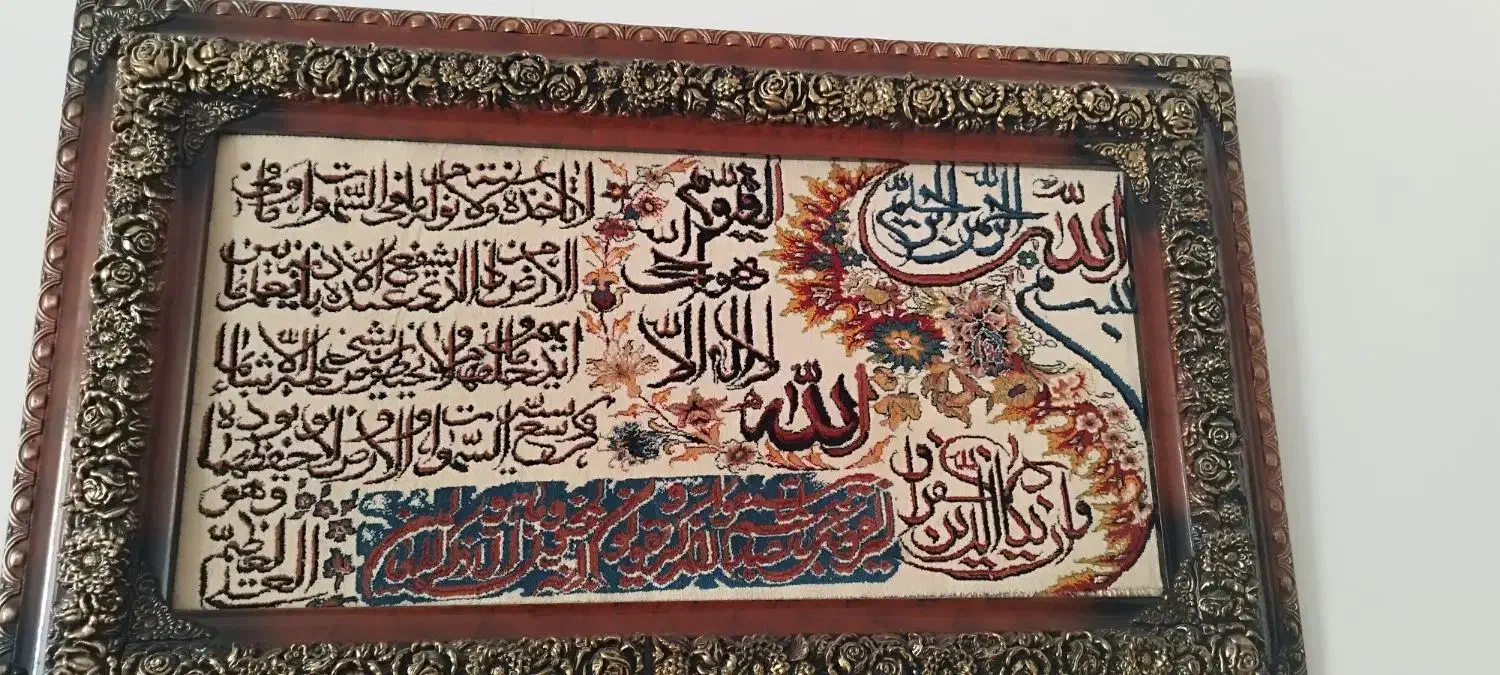 بسم
الله
الرحمن الرحيم
الله
لا اله الا
هو الحي
القيوم
لا تأخذه سنة ولا نوم له ما في السموات وما في
الارض من ذا الذي يشفع عنده الا باذنه يعلم ما بين
ايديهم وما خلفهم ولا يحيطون بشيء من علمه الا بما شاء
وسع كرسيه السموات والارض ولا يؤده حفظهما
وهو
العلي العظيم
وان يكاد الذين كفروا